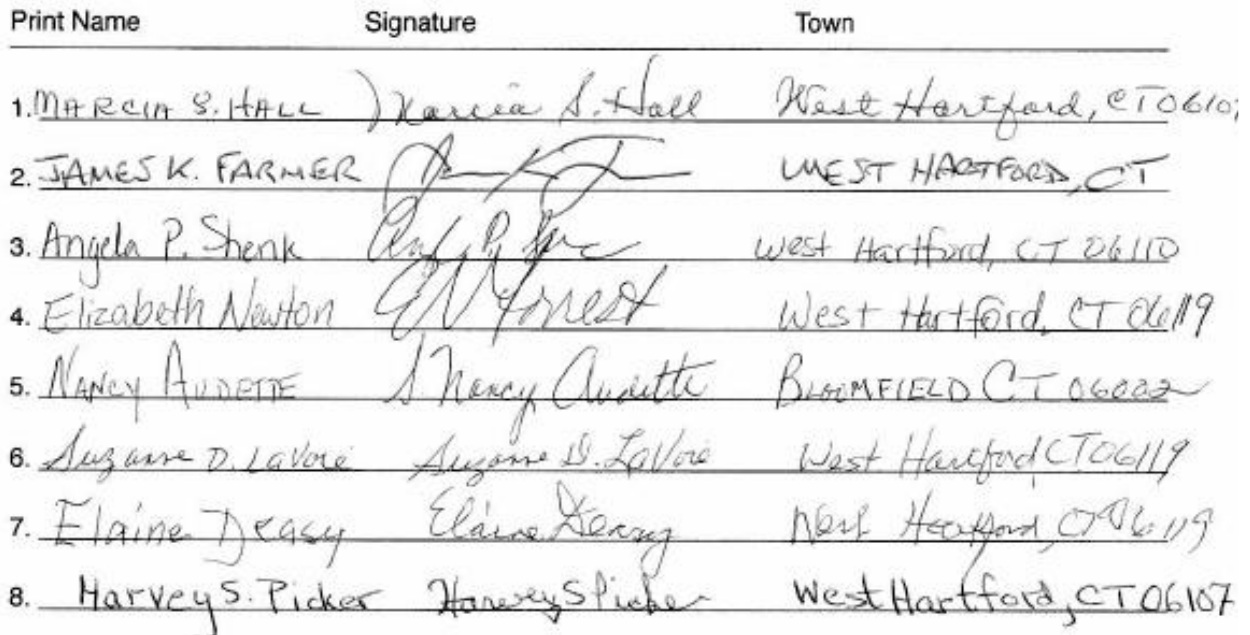 Print Name Signature Town
1. MARCIA S. HALL Marcia S. Hall West Hartford, CT 06107
2. JAMES K. FARMER WEST HARTFORD, CT
3. Angela P. Shenk West Hartford, CT 06110
4. Elizabeth Newton EN Forrest West Hartford, CT 06119
5. NANCY AUDETTE S. Nancy Audette BLOOMFIELD CT 06002
6. Suzanne D. LaVoie Suzanne D. LaVoie West Hartford CT 06119
7. Elaine Deasy Elaine Deasy West Hartford, CT 06119
8. Harvey S. Picker Harvey S Picker West Hartford, CT 06107